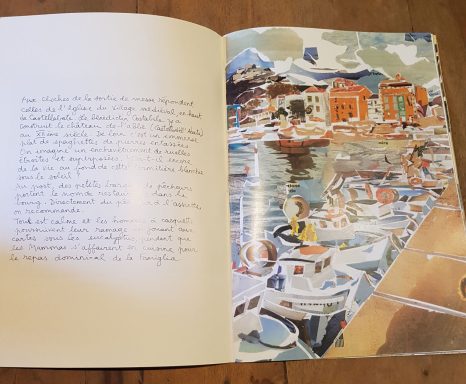 Aux cloches de la sortie de messe répondent
celles de l'église du village médiéval, en haut
de Castellabate. Le bénédictin Costabile y a
construit le château de l'abbé
au siècle. De loin c'est un immense
plat de spaghettis de pierres entassées.
On imagine un enchevêtrement de ruelles
étroites et superposées. encore
de la vie au fond de cette blanche
sous le soleil ?
Au port, des petits de pêcheurs
portent le nom de restau dans le
bourg. Directement du à l'assiette,
on recommande.
Tout est calme et les hommes à casquette
poursuivent leur ramage en jouant aux
cartes sous les eucalyptus, pendant que
les Mammas s'affairent en cuisine pour
le repas dominical de la famiglia.